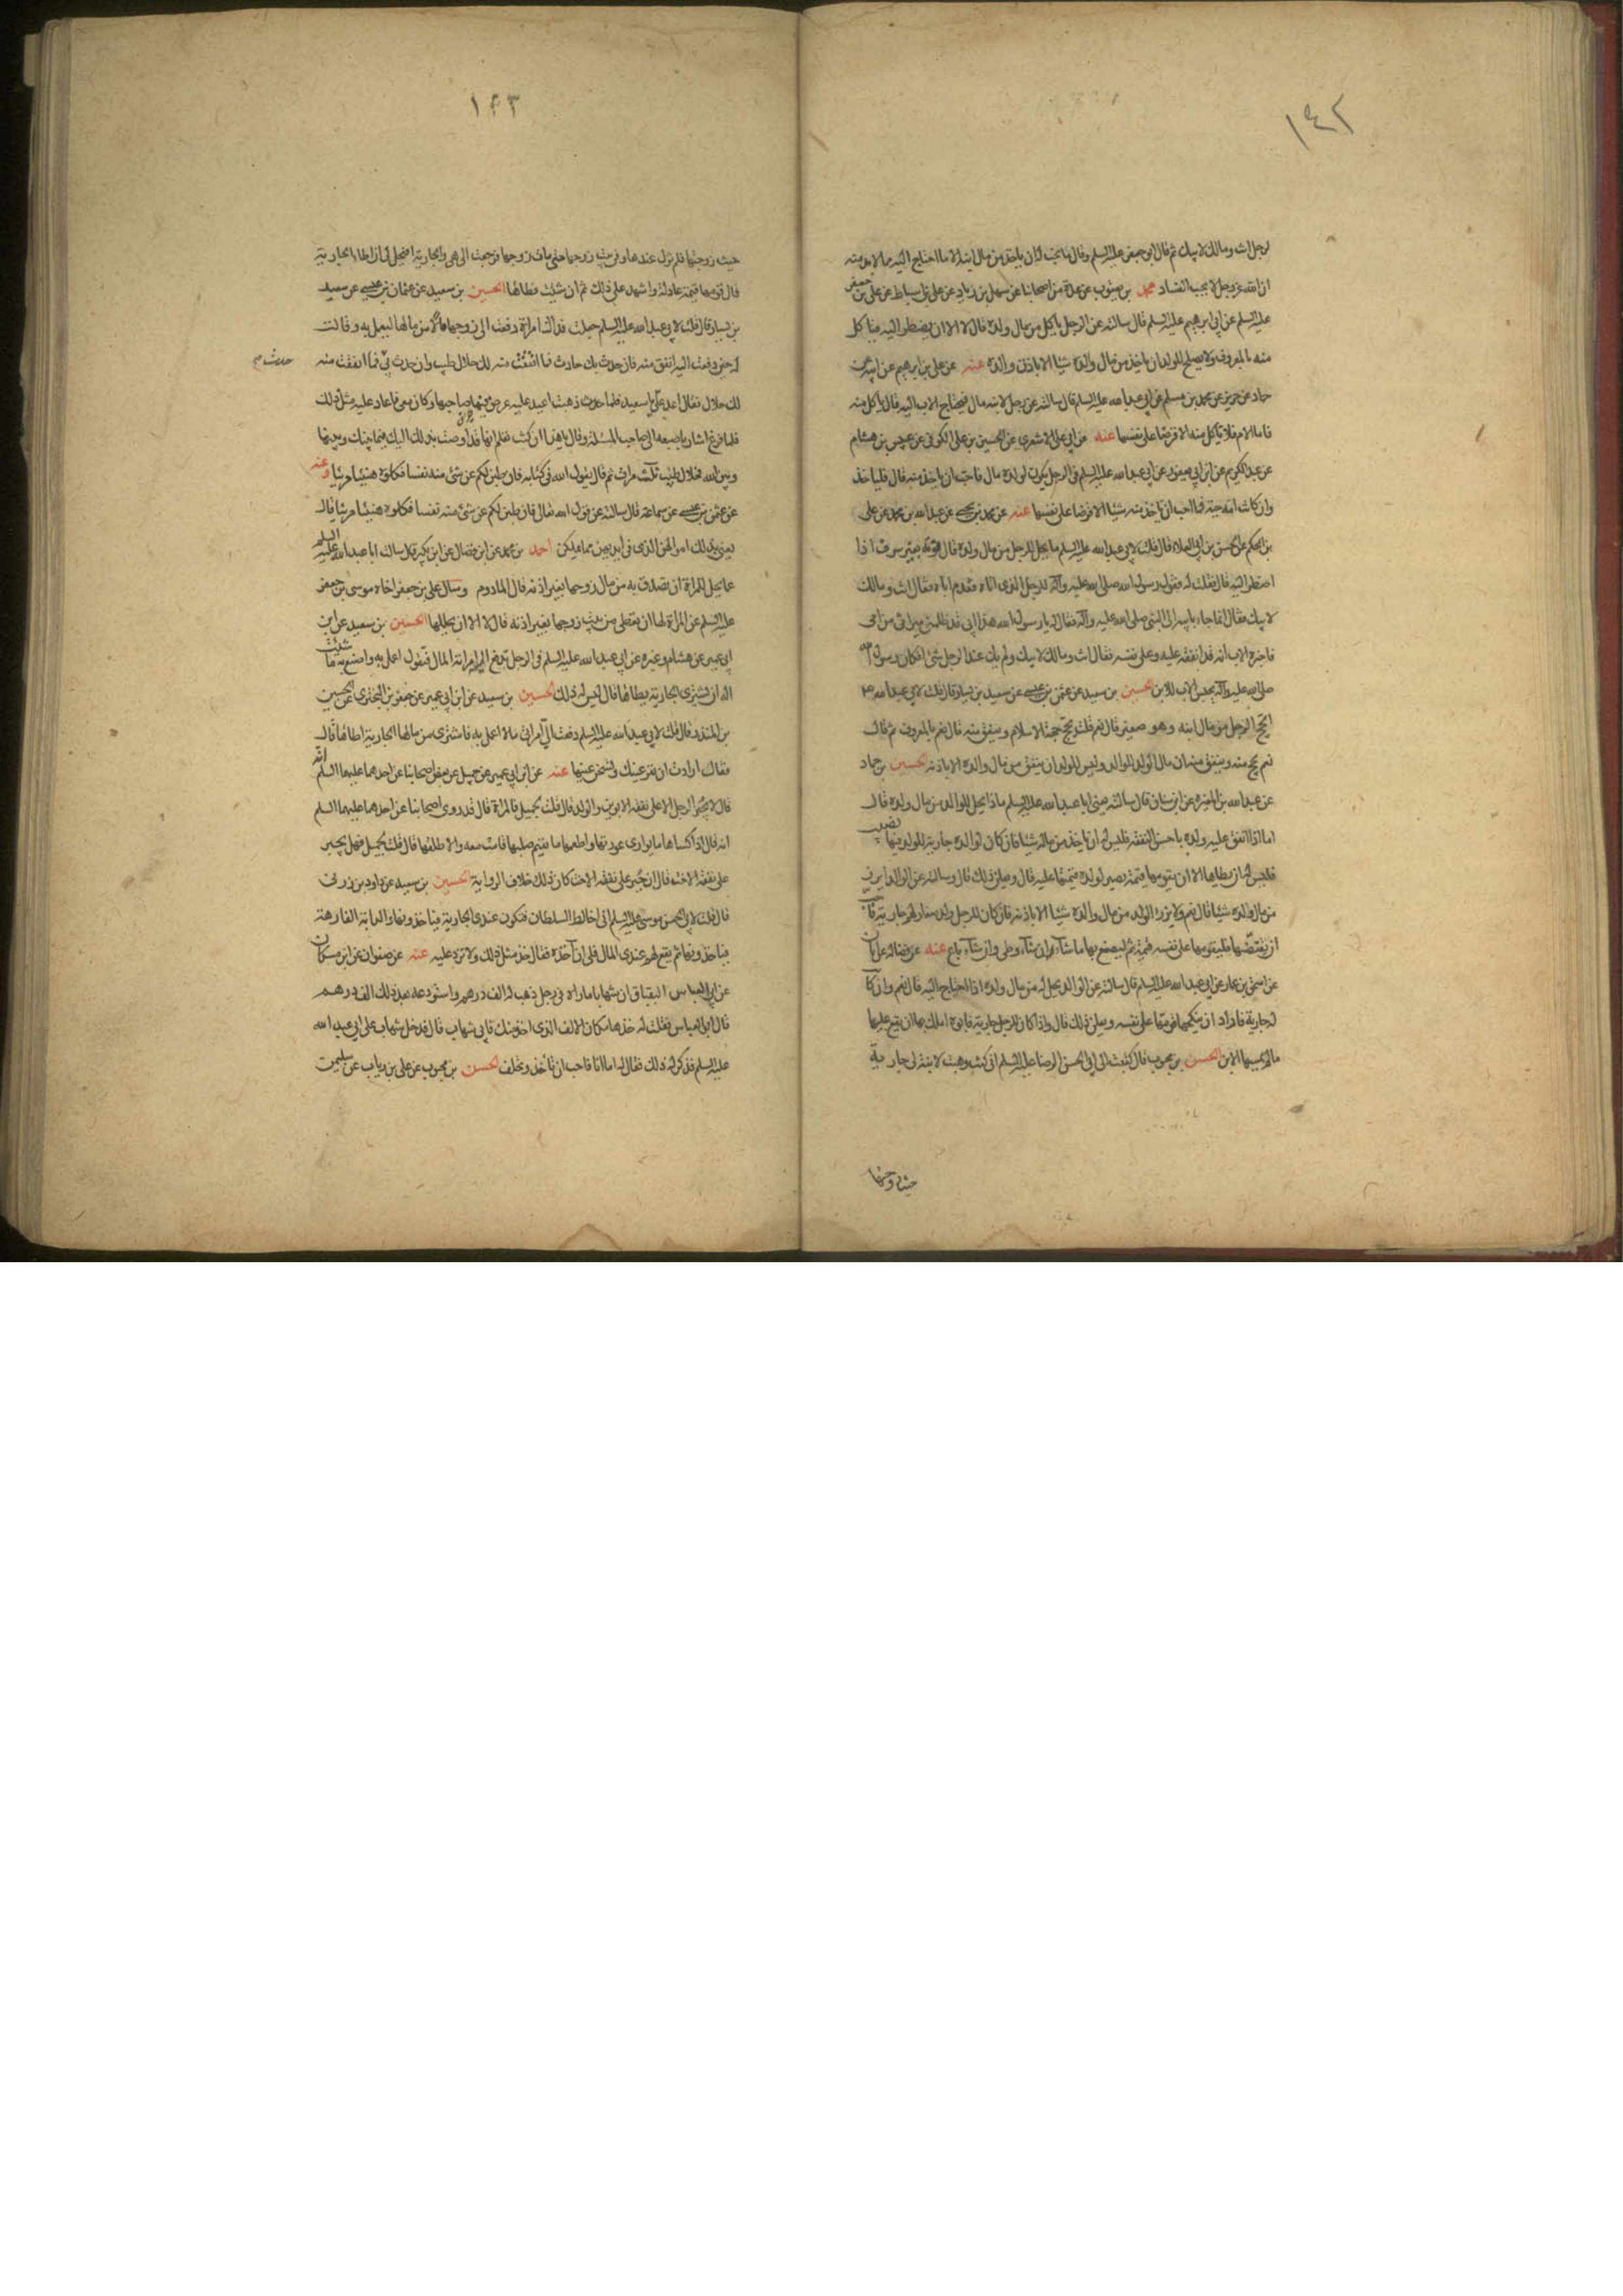 ١٤٢
لرجل انت ومالك لابيك ثم قال ابو جعفر عليه السلم وقال ما يحب له ان ياخذ من مال ابنه الا ما احتاج اليه مما لا بد منه
ان الله عز وجل لا يحب الفساد محمد بن يعقوب عن عدة من اصحابنا عن سهل بن زياد عن علي بن اسباط عن علي بن جعفر
عليه السلم عن ابي ابرهيم عليه السلم قال سالته عن الرجل ياكل من مال ولده قال لا الا ان يضطر اليه فياكل
منه بالمعروف ولا يصلح للولد ان ياخذ من مال والده شيئا الا باذن والده عنه عن علي بن ابرهيم عن ابيه عن
حماد عن حريز عن محمد بن مسلم عن ابي عبد الله عليه السلم قال سالته عن رجل لابنه مال فيحتاج الاب اليه قال ياكل منه
فاما الام فلا تاكل منه الا قرضا على نفسها عنه عن ابي علي الاشعري عن الحسين بن علي الكوفي عن عبيس بن هشام
عن عبد الكريم عن ابن ابي يعفور عن ابي عبد الله عليه السلم في الرجل يكون لولده مال فاحب ان ياخذ منه قال فلياخذ
وان كانت امه حية فما احب ان تاخذ منه شيئا الا قرضا على نفسها عنه عن محمد بن يحيى عن عبد الله بن محمد عن علي
بن الحكم عن الحسين بن ابي العلاء قال قلت لابي عبد الله عليه السلم ما يحل للرجل من مال ولده قال قوته بغير سرف اذا
اضطر اليه قال فقلت له فقول رسول الله صلى الله عليه وآله للرجل الذي اتاه فقدم اباه فقال انت ومالك
لابيك فقال انما جاء بابيه الى النبي صلى الله عليه وآله فقال له يا رسول الله هذا ابي قد ظلمني ميراثي من امي
فاخبره الاب انه قد انفقه عليه وعلى نفسه فقال انت ومالك لابيك ولم يك عند الرجل شئ افكان رسول الله
صلى الله عليه وآله يحبس الاب للابن الحسين بن سعيد عن عثمن بن عيسى عن سعيد بن يسار قال قلت لابي عبد الله ع
ايحج الرجل من مال ابنه وهو صغير قال نعم قلت يحج حجة الاسلام وينفق منه قال نعم بالمعروف ثم قال
نعم يحج منه وينفق منه ان مال الولد للوالد وليس للولد ان ينفق من مال والده الا باذنه الحسين بن حماد
عن عبد الله بن المغيرة عن ابن سنان قال سالته يعني ابا عبد الله عليه السلم ماذا يحل للوالد من مال ولده قال
اما اذا انفق عليه ولده باحسن النفقة فليس له ان ياخذ من ماله شيئا فان كان لوالده جارية للولد فيها نصيب
فليس له ان يطاها الا ان يقومها قيمة تصير لولده قيمتها عليه قال ويعلن ذلك قال وسالته عن الوالد ايرزء
من مال ولده شيئا قال نعم ولا يرزء الولد من مال والده شيئا الا باذنه فان كان للرجل ولد صغار لهم جارية فاحب
ان يفتضها فليقومها على نفسه قيمة ثم ليصنع بها ما شاء ان شاء وطي وان شاء باع عنه عن فضالة عن ابان
عن اسحق بن عمار عن ابي عبد الله عليه السلم قال سالته عن الوالد يحل له من مال ولده اذا احتاج اليه قال نعم وان كان
له جارية فاراد ان ينكحها قومها على نفسه ويعلن ذلك قال واذا كان للرجل جارية فابوه املك بها ان يقع عليها
ما لم يمسها الابن الحسن بن محبوب قال كتبت الى ابي الحسن الرضا عليه السلم اني كنت وهبت لابنة لي جارية
حيث زوجتها
١٤٣
حيث زوجتها فلم تزل عندها وفي بيت زوجها حتى مات زوجها فرجعت الي هي والجارية افيحل لي ان اطا الجارية
قال قومها قيمة عادلة واشهد على ذلك ثم ان شئت فطاها الحسين بن سعيد عن عثمان بن عيسى عن سعيد
بن يسار قال قلت لابي عبد الله عليه السلم جعلت فداك امراة دفعت الى زوجها مالا من مالها ليعمل به وقالت
له حين دفعت اليه انفق منه فان حدث بك حادث فما انفقت منه لك حلال طيب وان حدث بي فما انفقت منه
لك حلال فقال اعد علي يا سعيد فلما ذهبت اعيد عليه عرض فيها صاحبها وكان معي فاعاد عليه مثل ذلك
فلما فرغ اشار باصبعه الى صاحب المسئلة وقال يا هذا ان كنت تعلم انها قد اوصت بذلك اليك فيما بينك وبينها
وبين الله فحلال طيب ثلث مرات ثم قال يقول الله في كتابه فان طبن لكم عن شئ منه نفسا فكلوه هنيئا مريئا وعنه
عن عثمن بن عيسى عن سماعة قال سالته عن قول الله تعالى فان طبن لكم عن شئ منه نفسا فكلوه هنيئا مريئا قال
يعني بذلك اموالهن الذي في ايديهن مما ملكن احمد بن محمد عن ابن فضال عن ابن بكير قال سالت ابا عبد الله عليه السلم
عما يحل للمراة ان تصدق به من مال زوجها بغير اذنه قال المادوم وسال علي بن جعفر اخاه موسى بن جعفر
عليه السلم عن المراة لها ان تعطي من بيت زوجها بغير اذنه قال لا الا ان يحللها الحسين بن سعيد عن ابن
ابي عمير عن هشام وغيره عن ابي عبد الله عليه السلم في الرجل تدفع اليه امراته المال فتقول اعمل به واصنع به ما شئت
اله ان يشتري الجارية يطاها قال ليس له ذلك الحسين بن سعيد عن ابن ابي عمير عن حفص بن البختري عن الحسين
بن المنذر قال قلت لابي عبد الله عليه السلم دفعت الي امراتي مالا اعمل به فاشتري من مالها الجارية اطاها قال
فقال ارادت ان تقر عينك وتسخن عينها عنه عن ابن ابي عمير عن جميل عن بعض اصحابنا عن احدهما عليهما السلم انه
قال لا يجبر الرجل الا على نفقة الابوين والولد قال قلت لجميل فالمراة قال قد روى اصحابنا عن احدهما عليهما السلم
انه قال اذا كساها ما يواري عورتها واطعمها ما يقيم صلبها قامت معه والا طلقها قال قلت لجميل فهل يجبر
على نفقة الاخت قال ان جبر على نفقة الاخت كان ذلك خلاف الرواية الحسين بن سعيد عن داود بن زربي
قال قلت لابي الحسن موسى عليه السلم اني اخالط السلطان فتكون عندي الجارية فياخذونها والدابة الفارهة
فياخذونها ثم يقع لهم عندي المال فلي ان آخذه فقال خذ مثل ذلك ولا تزد عليه عنه عن صفوان عن ابن مسكان
عن ابي العباس البقباق ان شهابا ماراه في رجل ذهب له الف درهم واستودعه بعد ذلك الف درهم
قال ابو العباس فقلت له خذها مكان الالف الذي اخذ منك فابى شهاب قال فدخل شهاب على ابي عبد الله
عليه السلم فذكر له ذلك فقال له اما انا فاحب ان تأخذ وتحلف الحسن بن محبوب عن علي بن رياب عن سليمن